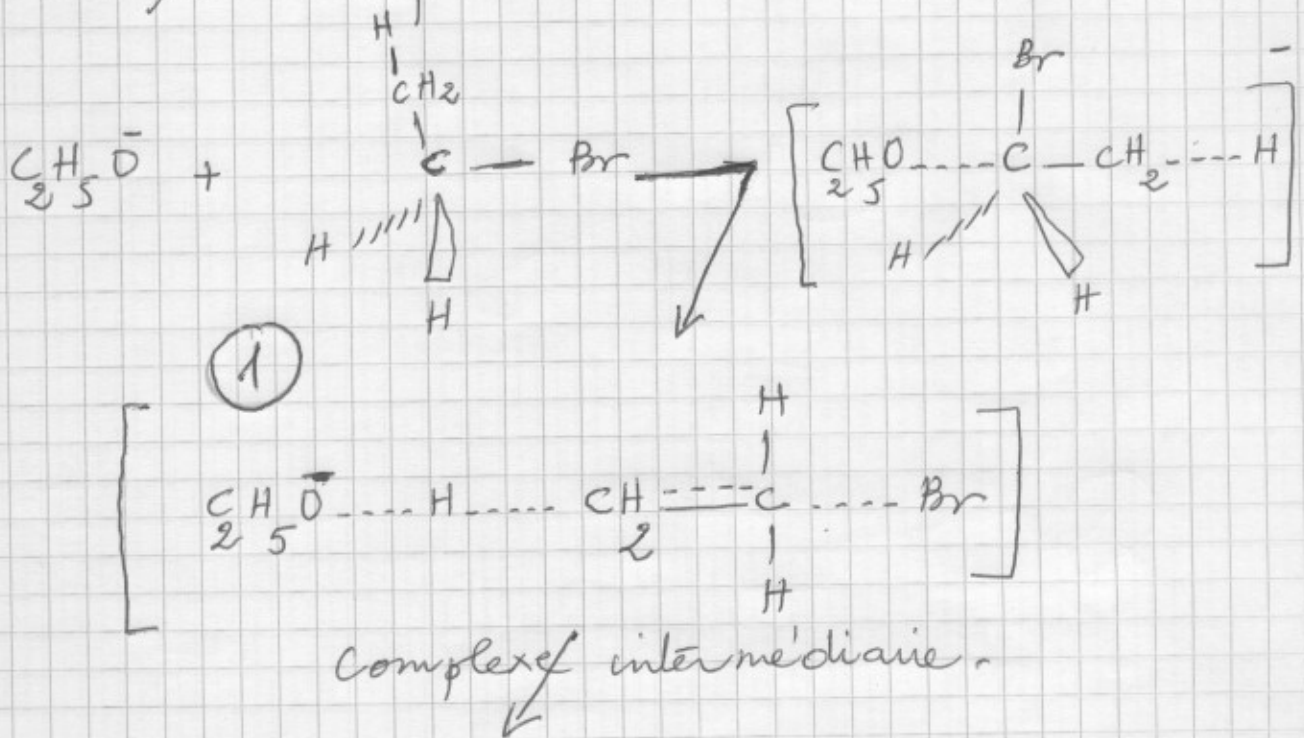 H
CH2
C2H5O- + C — Br [C2H5O----C — CH2----H]-
Br
H
H
H
H
1
H
[C2H5O-----H-----CH2=C-----Br]
H
complexe intermédiaire.